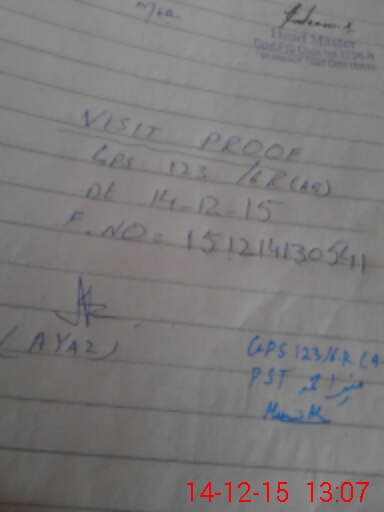 Head Master
VISIT PROOF
GPS 123/6R(AB)
Dt 14-12-15
F.NO = 151214130541
(AYAZ)
GPS 123/6.R (A
PST
14-12-15 13:07